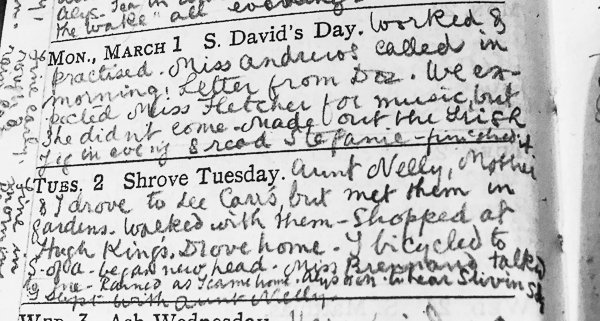 Alys - Tea in
the wake" all evening
MON., MARCH 1 S. David's Day. Worked &
practised. Miss Andrews called in
morning. Letter from Doz. We ex-
pected Miss Fletcher for music, but
she didn't come. Made out the Irish
Jig in evening & read Stefanie - finished it
TUES. 2 Shrove Tuesday. Aunt Nelly, Mother
& I drove to see Carrs, but met them in
Gardens. Walked with them - Shopped at
Hugh King's. Drove home. I bicycled to
of a - began new head. Miss Brennand talked
to me - Rained as I came home. Alys in to hear Slivinski
Slept with Aunt Nelly.
WED. 3 Ash Wednesday.
Fine early,
Fine in